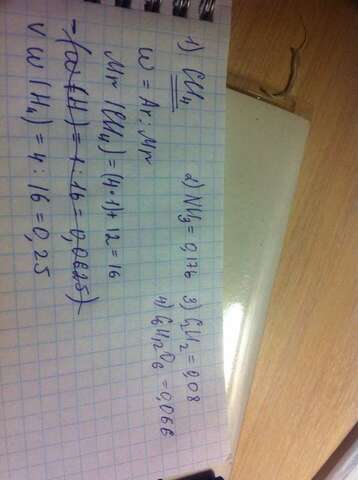 1) CH₄
W = Ar : Mr
Mr (CH₄) = (4·1) + 12 = 16
W (H) = 1 : 16 = 0,0625
V W (H₄) = 4 : 16 = 0,25
2) NH₃ = 0,176
3) C₂H₂ = 0,08
4) C₆H₁₂O₆ = 0,066